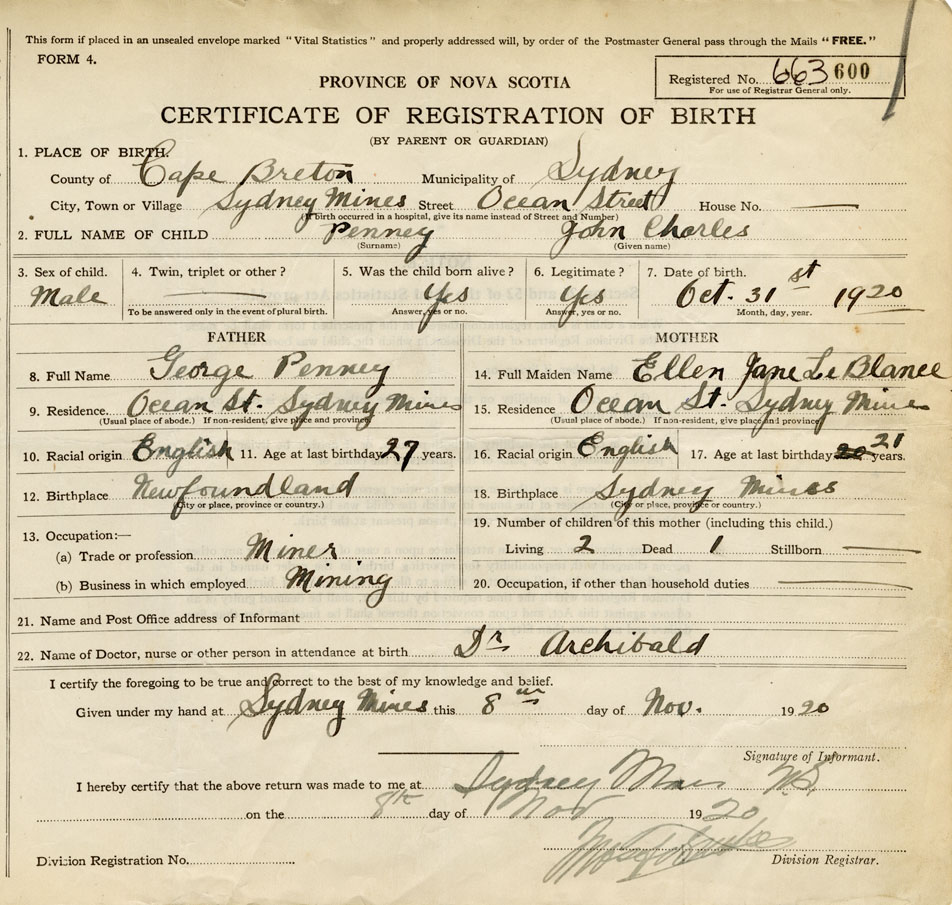 This form if placed in an unsealed envelope marked "Vital Statistics" and properly addressed will, by order of the Postmaster General pass through the Mails "FREE."
FORM 4.
Registered No. 663 600
For use of Registrar General only.
PROVINCE OF NOVA SCOTIA
CERTIFICATE OF REGISTRATION OF BIRTH
(BY PARENT OR GUARDIAN)
1. PLACE OF BIRTH.
County of Cape Breton Municipality of Sydney
City, Town or Village Sydney Mines Street Ocean Street House No.
(If birth occurred in a hospital, give its name instead of Street and Number)
2. FULL NAME OF CHILD Penney John Charles
(Surname) (Given name)
3. Sex of child. 4. Twin, triplet or other? 5. Was the child born alive? 6. Legitimate? 7. Date of birth.
Male Yes Yes Oct. 31st 1920
To be answered only in the event of plural birth. Answer, yes or no. Answer, yes or no. Month, day, year.
FATHER MOTHER
8. Full Name George Penney 14. Full Maiden Name Ellen Jane Le Blance
9. Residence. Ocean St. Sydney Mines 15. Residence Ocean St. Sydney Mines
(Usual place of abode.) If non-resident, give place and province (Usual place of abode.) If non-resident, give place and province
10. Racial origin English 11. Age at last birthday 27 years. 16. Racial origin English 17. Age at last birthday 20 21 years.
12. Birthplace Newfoundland 18. Birthplace Sydney Mines
(City or place, province or country.) (City or place, province or country.)
13. Occupation:— 19. Number of children of this mother (including this child.)
(a) Trade or profession Miner Living 2 Dead 1 Stillborn
(b) Business in which employed Mining 20. Occupation, if other than household duties
21. Name and Post Office address of Informant
22. Name of Doctor, nurse or other person in attendance at birth Dr Archibald
I certify the foregoing to be true and correct to the best of my knowledge and belief.
Given under my hand at Sydney Mines this 8th day of Nov. 1920
Signature of Informant.
I hereby certify that the above return was made to me at Sydney Mines N.S.
on the 8th day of Nov 1920
Division Registration No. Division Registrar.